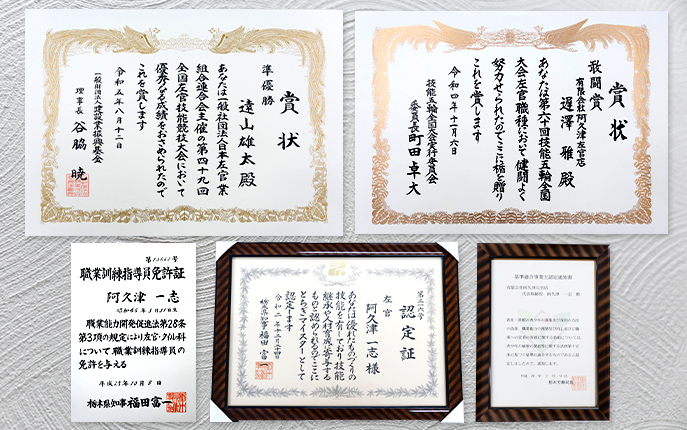 賞状
準優勝
遠山雄太殿
あなたは一般社団法人日本左官業
組合連合会主催の第四十九回
全国左官技能競技大会において
優秀なる成績をおさめられたので
これを賞します
令和五年八月十二日
一般財団法人建設業振興基金
理事長 谷脇 暁
賞状
敢闘賞
有限会社阿久津左官店
遅澤 雅殿
あなたは第六十回技能五輪全国
大会左官職種において健闘よく
努力せられたのでここに楯を贈り
これを賞します
令和四年十一月六日
技能五輪全国大会実行委員会
委員長 町田卓大
職業訓練指導員免許証
阿久津 一志
職業能力開発促進法第28条
第3項の規定により左官・タイル科
について職業訓練指導員の
免許を与える
平成25年10月8日
栃木県知事 福田富一
認定証
左官
阿久津 一志 様
あなたは優れたものづくりの
技能を有しており技能
継承や人材育成に寄与する
ものと認められるのでここに
とちぎマイスターとして
認定します
栃木県知事 福田富一
基準適合事業主認定通知書